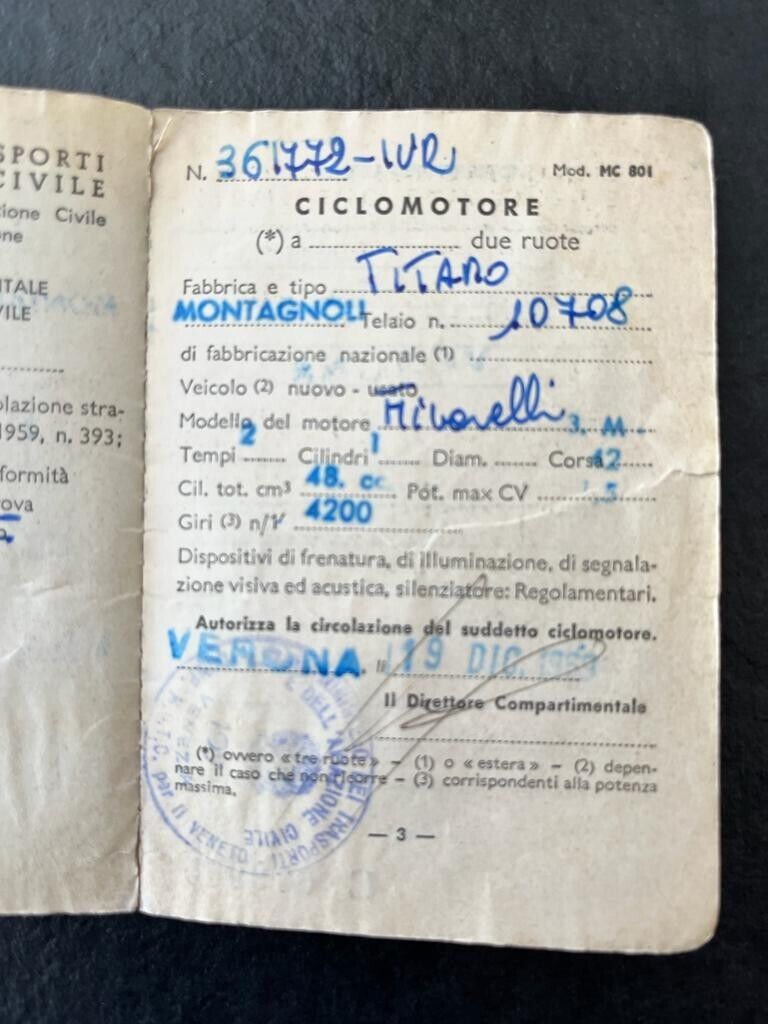 SPORTI
CIVILE
ione Civile
ne
TALE
VILE
olazione stra-
1959, n. 393;
formità
ova
N. 361772-IVR Mod. MC 801
CICLOMOTORE
(*) a due ruote
Fabbrica e tipo TITANO
MONTAGNOLI Telaio n. 10708
di fabbricazione nazionale (1)
Veicolo (2) nuovo - usato
Modello del motore Minarelli 3. M
Tempi 2 Cilindri 1 Diam. Corsa 42
Cil. tot. cm³ 48. cc Pot. max CV 1,5
Giri (3) n/1' 4200
Dispositivi di frenatura, di illuminazione, di segnala-
zione visiva ed acustica, silenziatore: Regolamentari.
Autorizza la circolazione del suddetto ciclomotore.
VERONA. li 19 DIC. 196
Il Direttore Compartimentale
(*) ovvero « tre ruote » – (1) o « estera » – (2) depen-
nare il caso che non ricorre – (3) corrispondenti alla potenza
massima.
DEI TRASPORTI
DELL'AVIAZIONE CIVILE
per il VENETO
— 3 —